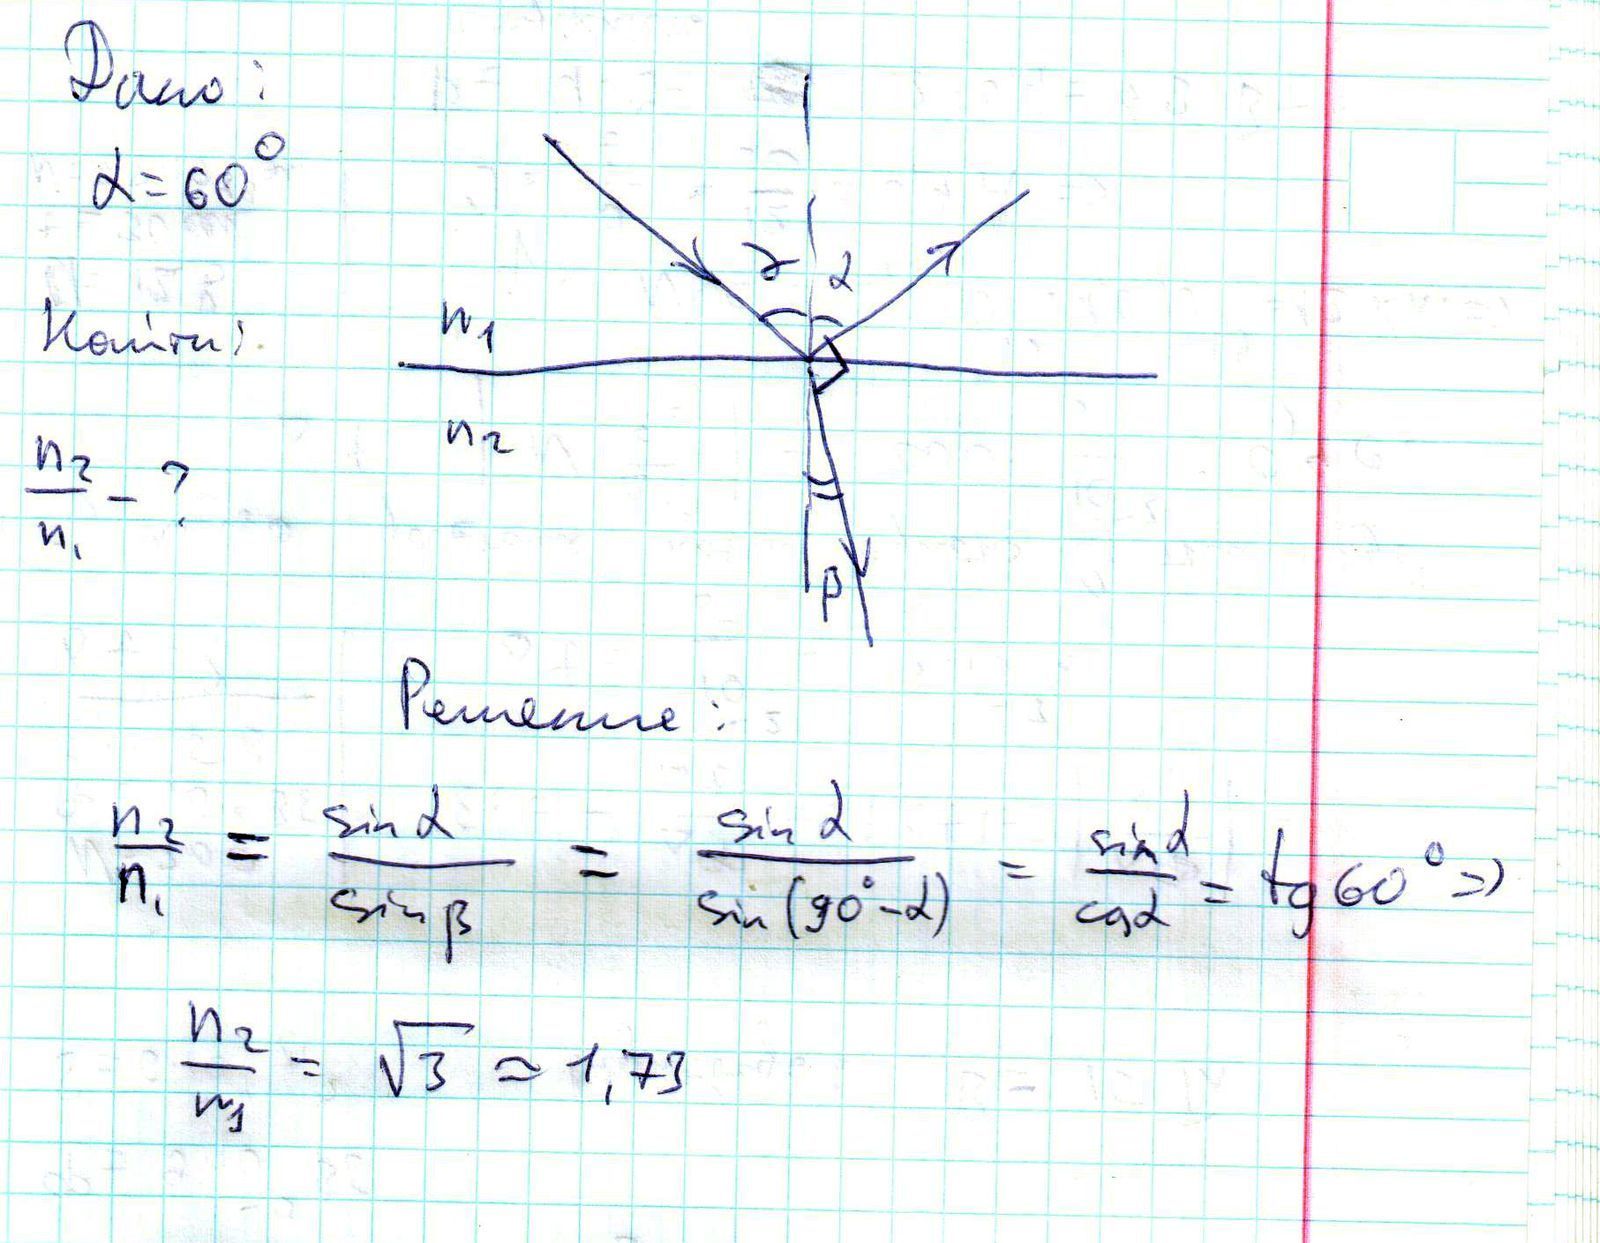 Дано:
α = 60°
Найти:
n₂/n₁ - ?
γ α
n₁
n₂
β
Решение:
n₂/n₁ = sin α / sin β = sin α / sin (90° - α) = sin α / cos α = tg 60° =>
n₂/n₁ = √3 ≃ 1,73